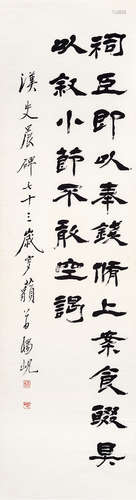 祠臣即以奉錢脩上案食醊具
以叙小節不敢空謁
漢史晨碑七十三歲藐翁楊峴